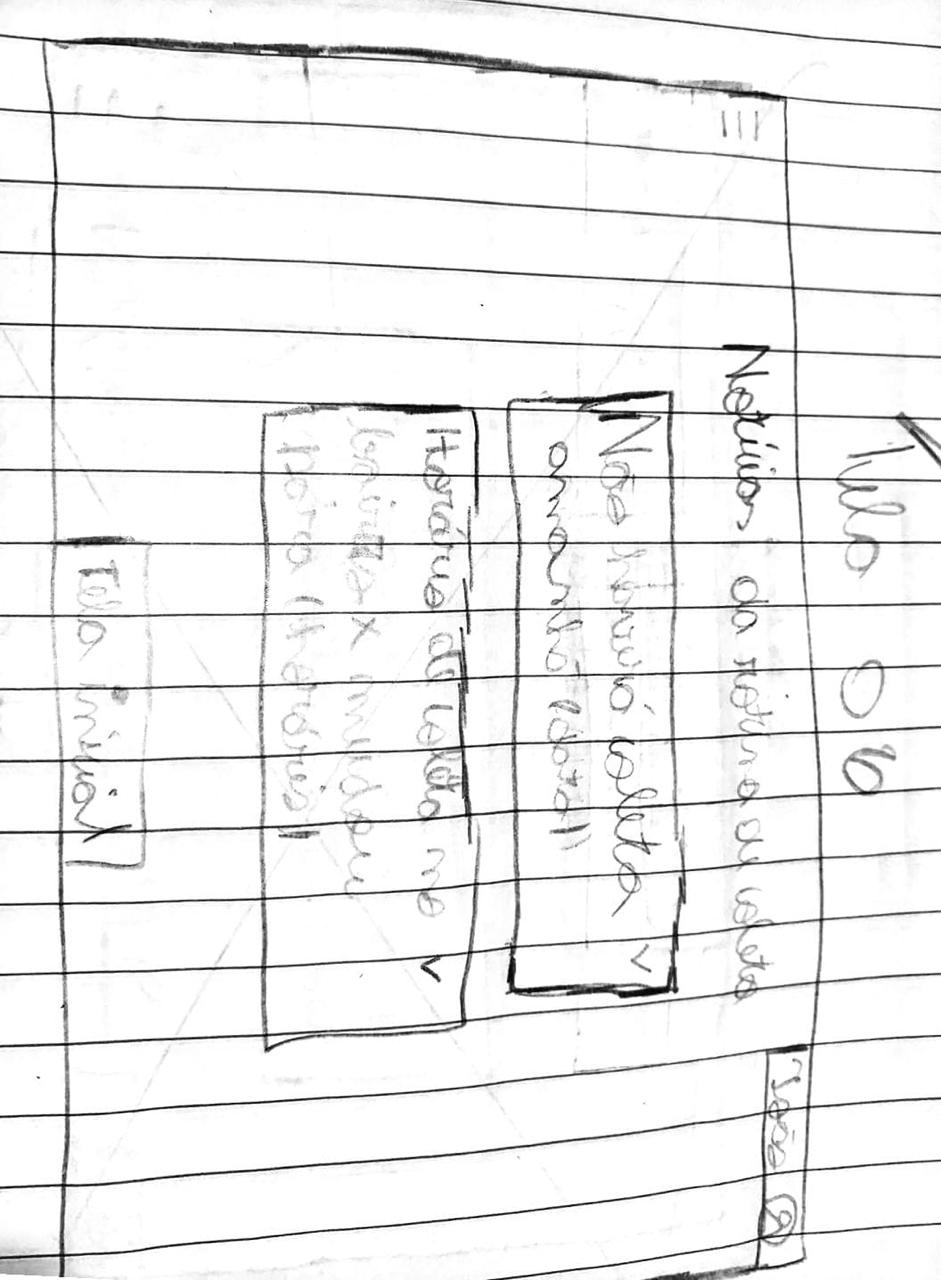 Tela 06
João
Notícias da rotina de coleta
Não haverá coleta
amanhã (data)
Horário de coleta no
bairro x mudou
para (horário)
Tela inicial